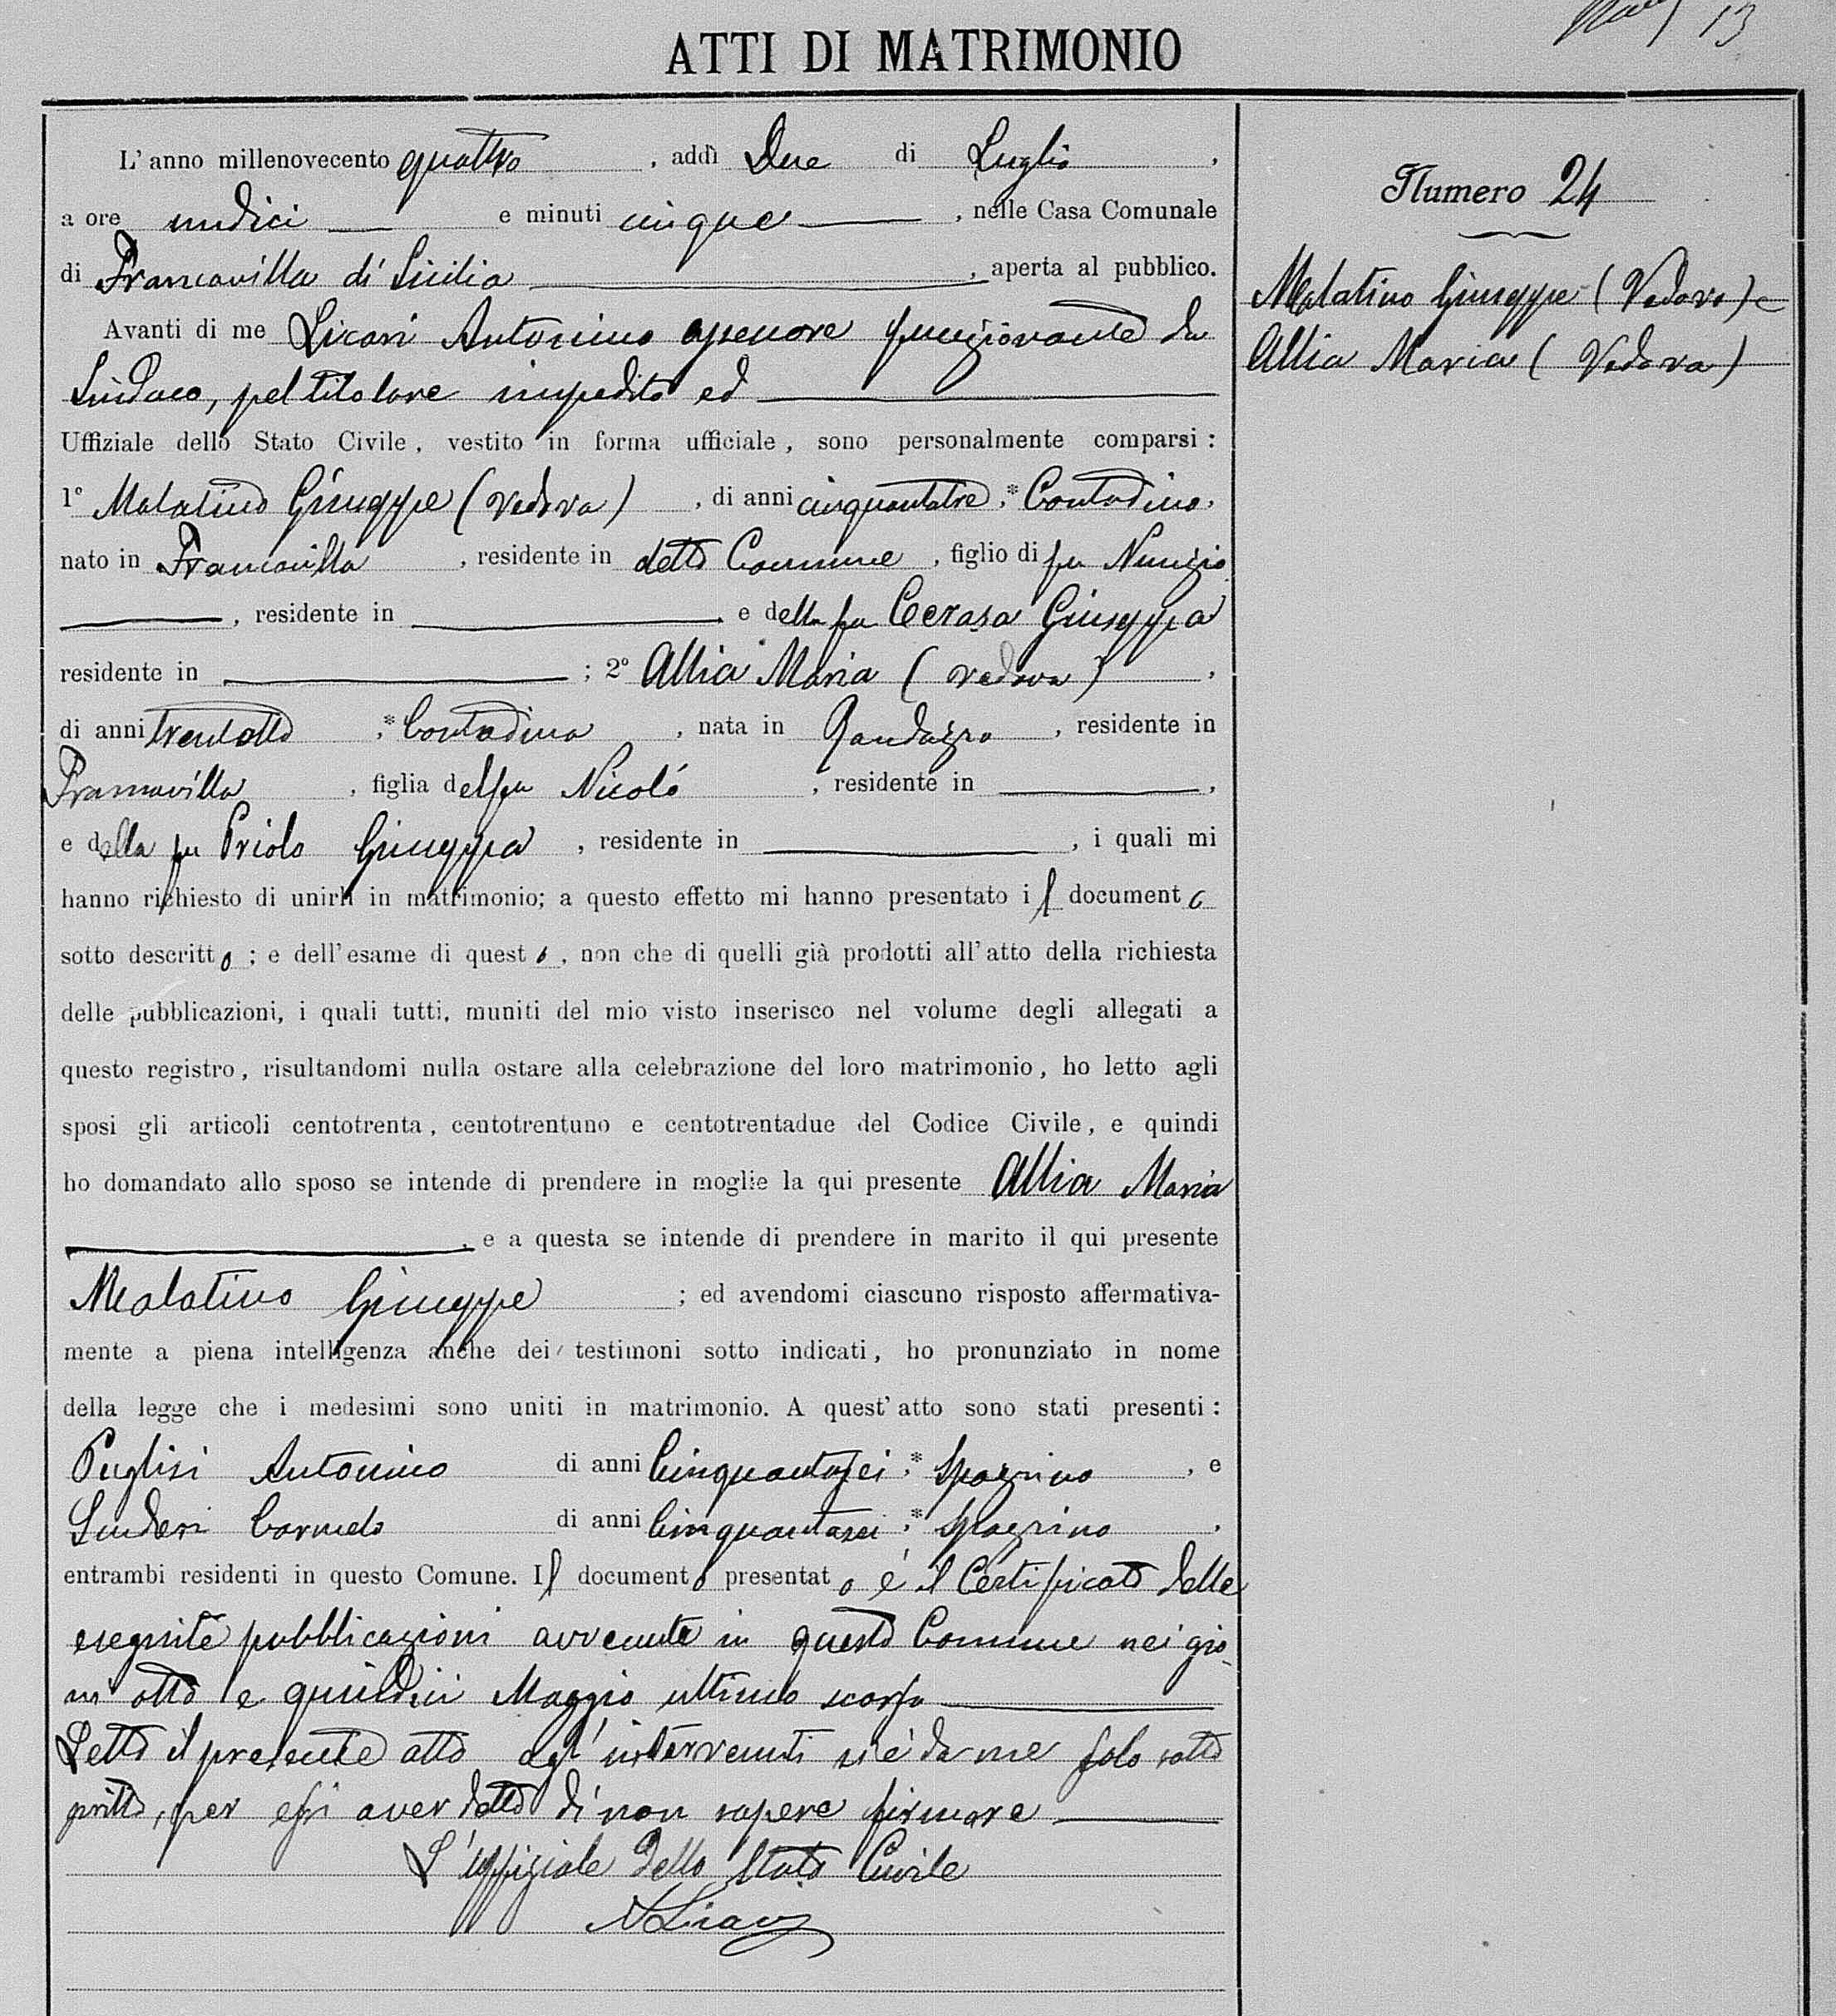 13
ATTI DI MATRIMONIO
L'anno millenovecento quattro, addì Due di Luglio,
a ore undici e minuti cinque, nelle Casa Comunale
di Francavilla di Sicilia, aperta al pubblico.
Avanti di me Licari Antonino assessore funzionante da
Sindaco, pel titolare impedito ed
Uffiziale dello Stato Civile, vestito in forma ufficiale, sono personalmente comparsi:
1° Malatino Giuseppe (vedovo), di anni cinquantatre, * Contadino,
nato in Francavilla, residente in detto Comune, figlio di fu Nunzio
, residente in e della fu Cerasa Giuseppa
residente in ; 2° Allia Maria (vedova),
di anni trentotto, * Contadina, nata in Randazzo, residente in
Francavilla, figlia del fu Nicolò, residente in ,
e della fu Priolo Giuseppa, residente in , i quali mi
hanno richiesto di unirli in matrimonio; a questo effetto mi hanno presentato il documento
sotto descritto; e dell'esame di questo, non che di quelli già prodotti all'atto della richiesta
delle pubblicazioni, i quali tutti, muniti del mio visto inserisco nel volume degli allegati a
questo registro, risultandomi nulla ostare alla celebrazione del loro matrimonio, ho letto agli
sposi gli articoli centotrenta, centotrentuno e centotrentadue del Codice Civile, e quindi
ho domandato allo sposo se intende di prendere in moglie la qui presente Allia Maria
, e a questa se intende di prendere in marito il qui presente
Malatino Giuseppe ; ed avendomi ciascuno risposto affermativa-
mente a piena intelligenza anche dei testimoni sotto indicati, ho pronunziato in nome
della legge che i medesimi sono uniti in matrimonio. A quest'atto sono stati presenti:
Puglisi Antonino di anni Cinquantasei, * Spazzino, e
Sinderi Carmelo di anni Cinquantasei, * Spazzino,
entrambi residenti in questo Comune. Il documento presentato è il Certificato delle
eseguite pubblicazioni avvenute in questo Comune nei gior
ni otto e quindici Maggio ultimo scorso
Letto il presente atto agl'intervenuti si è da me solo sotto
scritto, per essi aver detto di non sapere firmare
L'Uffiziale dello Stato Civile
A Licari
Numero 24
Malatino Giuseppe (Vedovo) e
Allia Maria (Vedova)